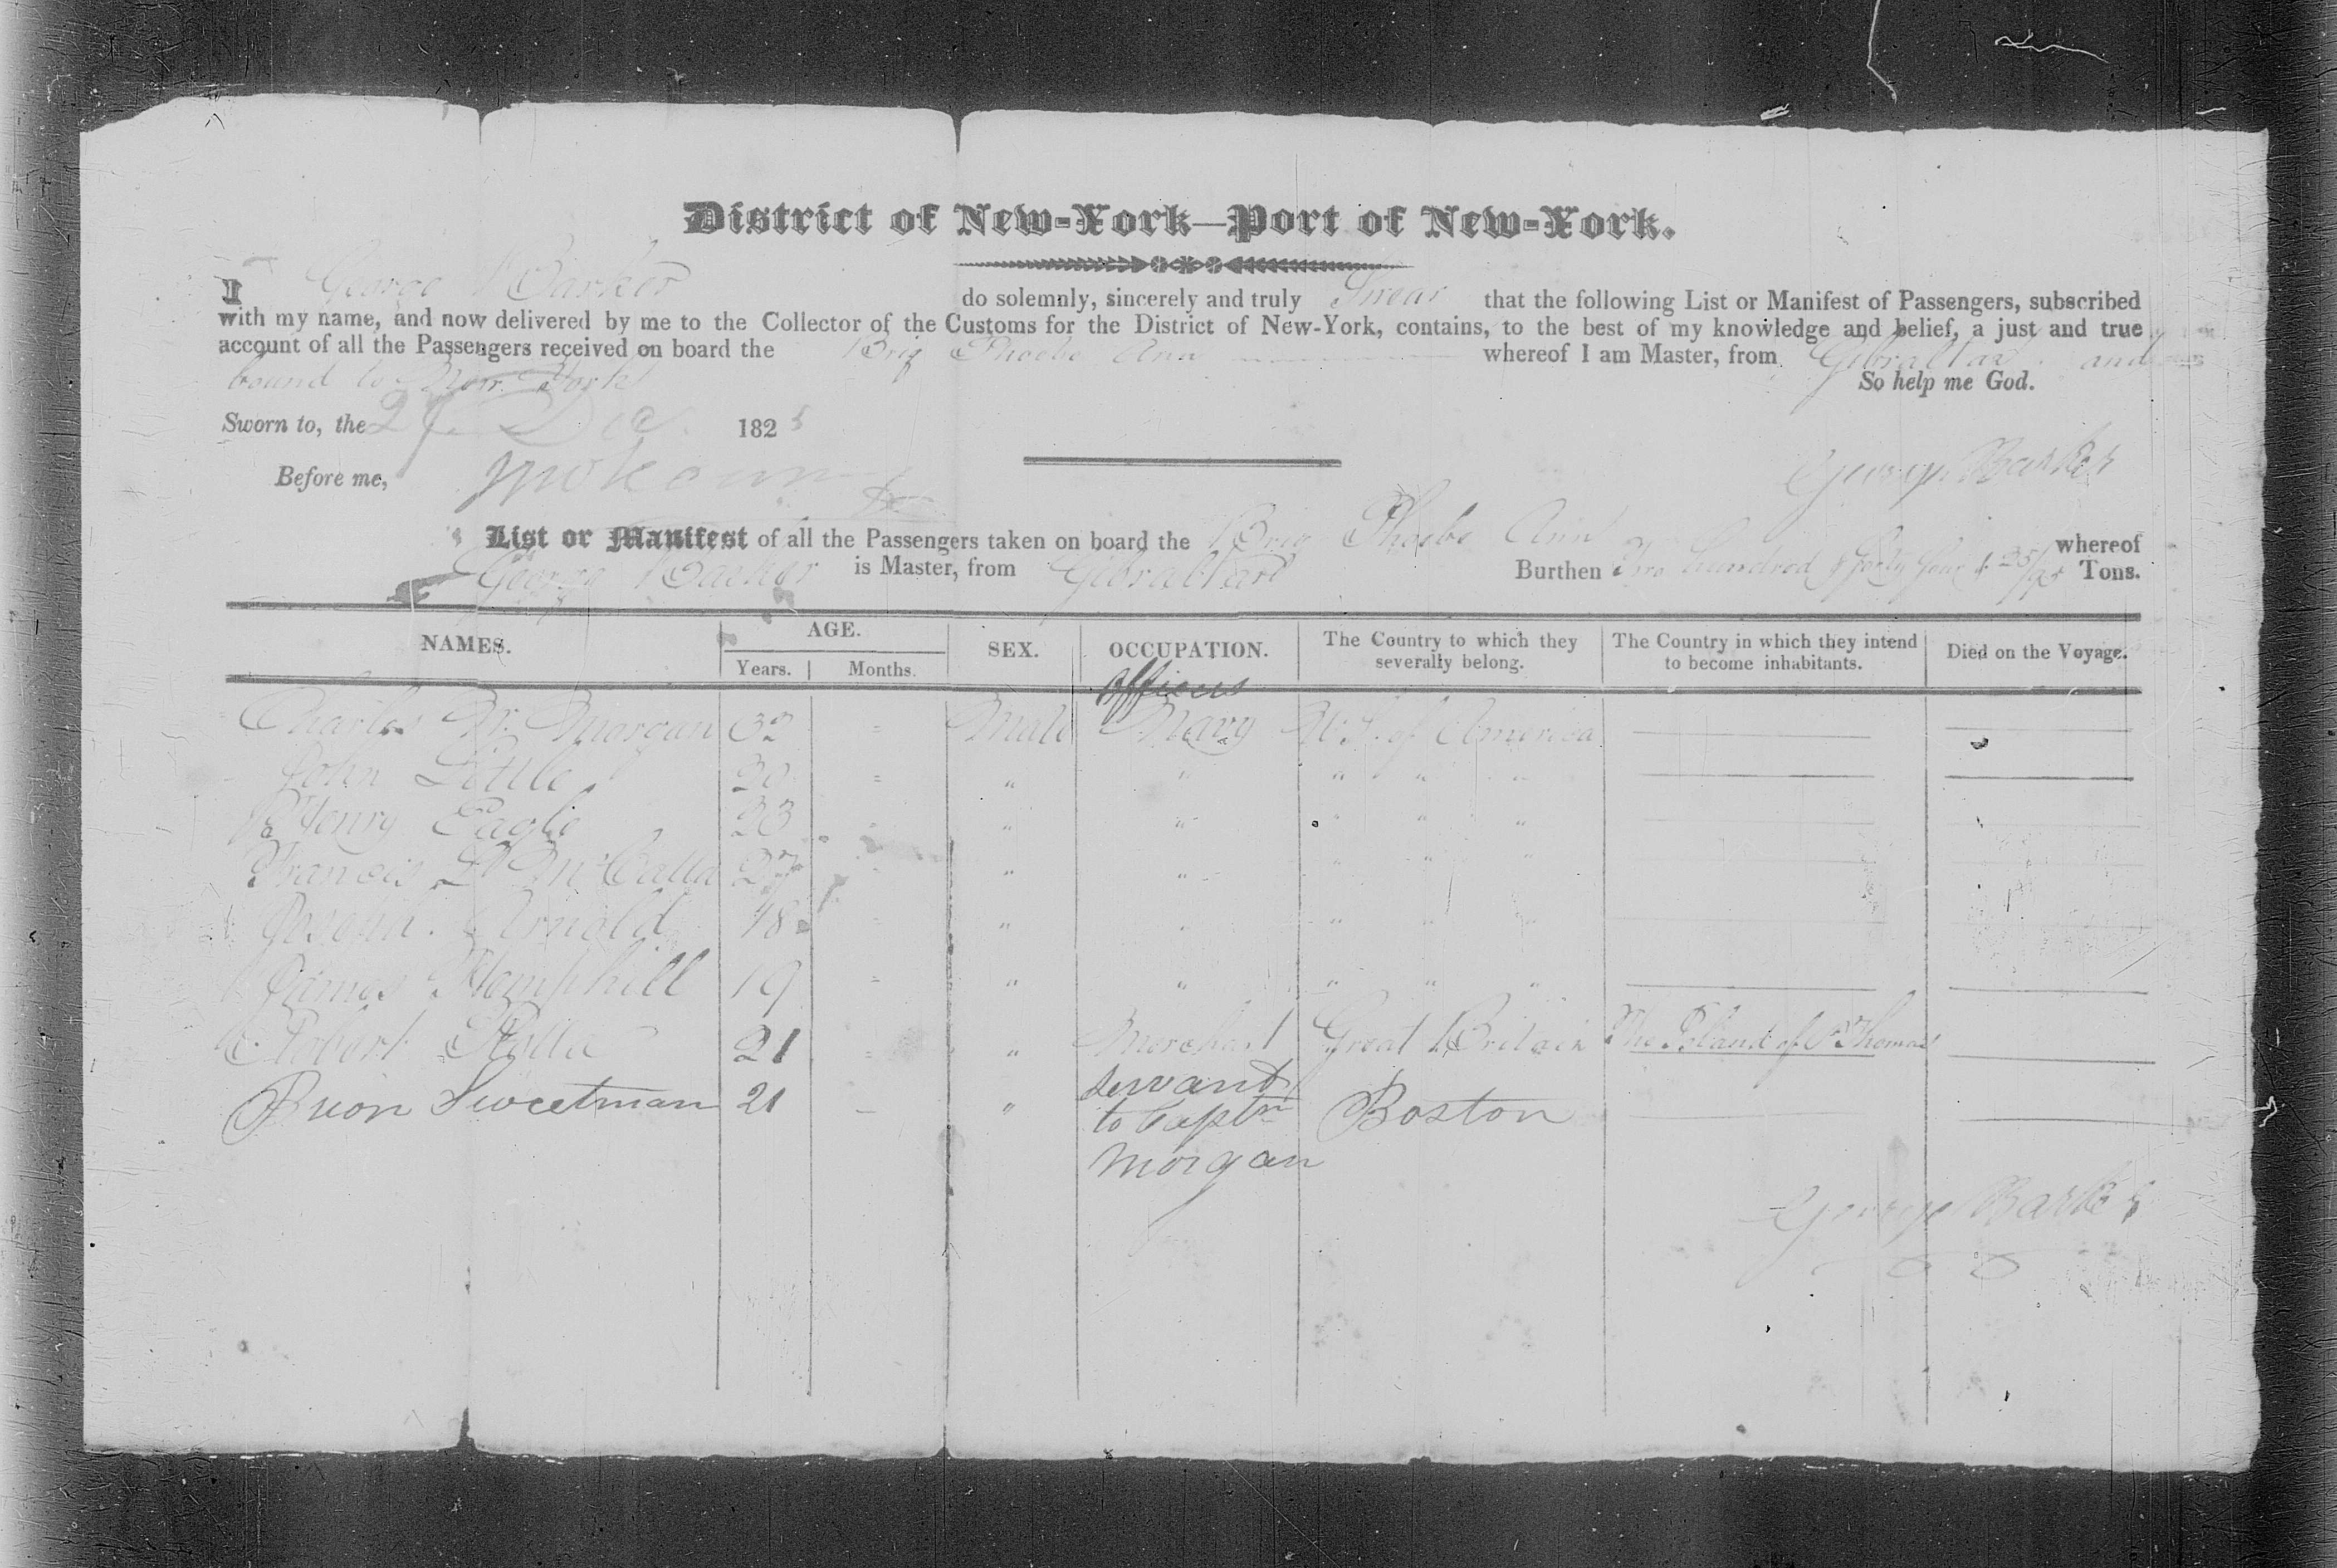 District of New-York—Port of New-York.
I George Barker do solemnly, sincerely and truly Swear that the following List or Manifest of Passengers, subscribed
with my name, and now delivered by me to the Collector of the Customs for the District of New-York, contains, to the best of my knowledge and belief, a just and true
account of all the Passengers received on board the Brig Phoebe Ann whereof I am Master, from Gibraltar and
bound to New York So help me God.
Sworn to, the Dec. 182
Before me,
George Barker
List or Manifest of all the Passengers taken on board the Brig Phoebe Ann whereof
George Barker is Master, from Gibraltar Burthen Two hundred & forty four & 25/95 Tons.
NAMES. AGE. SEX. OCCUPATION. The Country to which they severally belong. The Country in which they intend to become inhabitants. Died on the Voyage.
Years. Months.
officers
Charles W. Morgan 32 " Male Navy U.S. of America
John " " " " " "
Henry Eagle 23 " " " " " "
Francis McCalla 27 " " " " " "
Joseph Arnold 18 " " " " " "
James Hemphill 19 " " " " " "
Robert 21 " " Merchant Great Britain The Island of St Thomas
Sweetman 21 — " servant to Captn Morgan Boston
George Barker